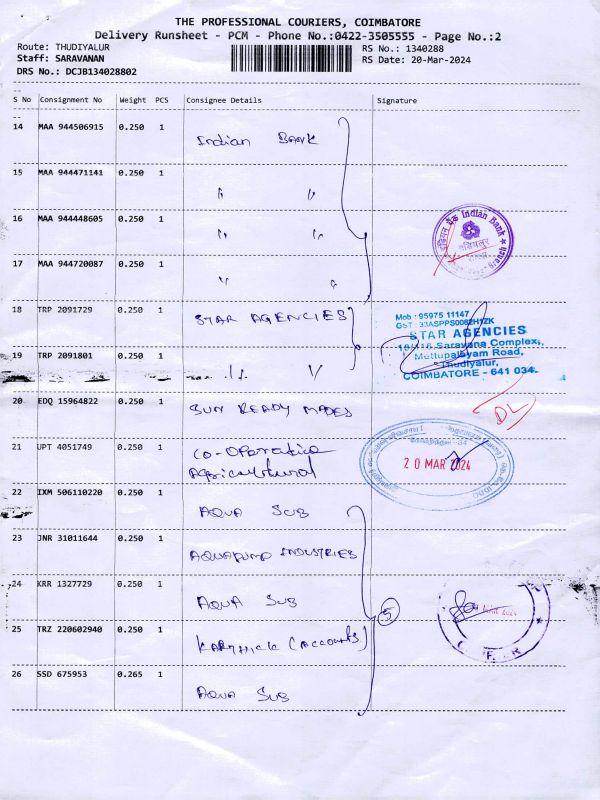 THE PROFESSIONAL COURIERS, COIMBATORE
Delivery Runsheet - PCM - Phone No.:0422-3505555 - Page No.:2
Route: THUDIYALUR
RS No.: 1340288
Staff: SARAVANAN
RS Date: 20-Mar-2024
DRS No.: DCJB134028802
S No Consignment No Weight PCS Consignee Details Signature
14 MAA 944506915 0.250 1 Indian Bank
15 MAA 944471141 0.250 1 " "
16 MAA 944448605 0.250 1 " "
17 MAA 944720087 0.250 1 " "
Indian Bank
18 TRP 2091729 0.250 1 STAR AGENCIES
Mob : 95975 11147
STAR AGENCIES
Saravana Complex,
Mettupalayam Road,
Thudiyalur,
COIMBATORE - 641 034.
19 TRP 2091801 0.250 1 " "
20 EDQ 15964822 0.250 1 SUN READY MADES
DL
21 UPT 4051749 0.250 1 CO-Operative
Agricultural
20 MAR 2024
22 IXM 506110220 0.250 1 AQUA SUB
23 JNR 31011644 0.250 1 AQUAPUMP INDUSTRIES
24 KRR 1327729 0.250 1 AQUA SUB
5
25 TRZ 220602940 0.250 1 KARTHICK (ACCOUNTS)
26 SSD 675953 0.265 1 AQUA SUB